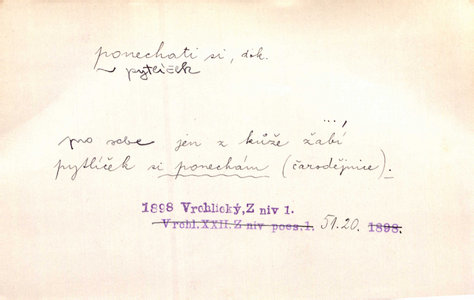 ponechati si, dok.
pytlíček
...,
pro sebe jen z kůže žabí
pytlíček si ponechám (čarodějnice).
1898 Vrchlický, Z niv 1.
Vrchl.XXII.Z niv poes.1. 51.20. 1898.